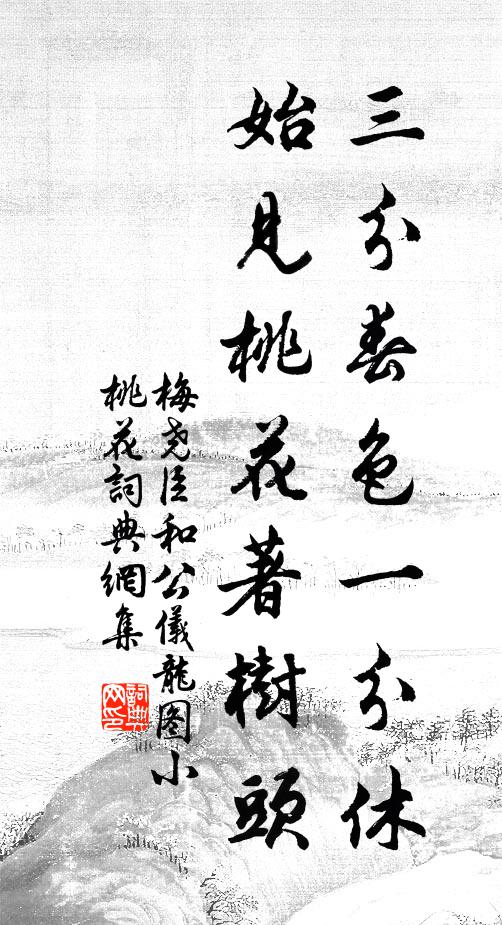 三分春色一分休
始見桃花著樹頭
梅尧臣和公儀龍图小
桃花詞典網集
詞典
网印